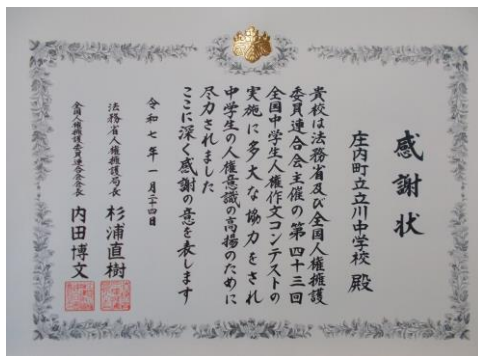 感謝状
庄内町立立川中学校 殿
貴校は法務省及び全国人権擁護
委員連合会主催の第四十三回
全国中学生人権作文コンテストの
実施に多大な協力をされ
中学生の人権意識の高揚のために
尽力されました
ここに深く感謝の意を表します
令和七年一月二十四日
法務省人権擁護局長 杉浦直樹
全国人権擁護委員連合会会長 内田博文